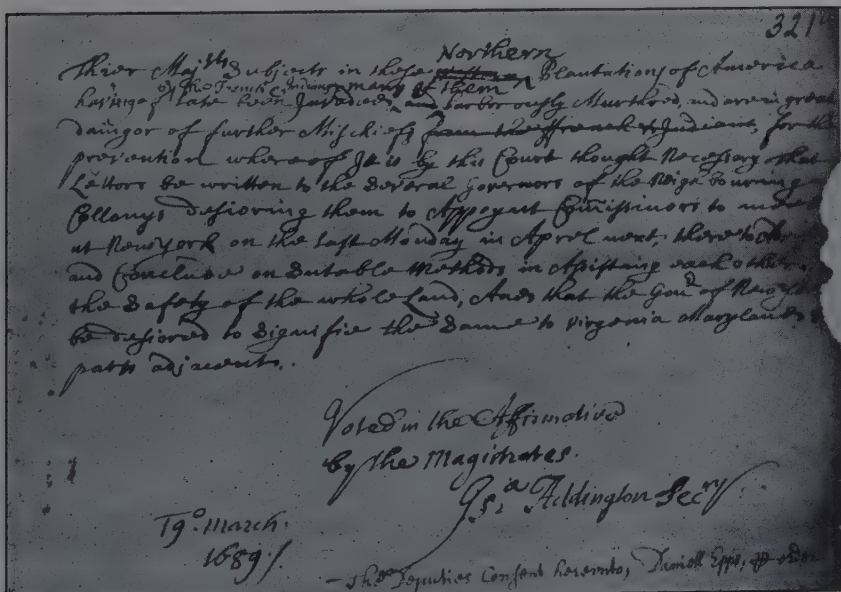 321
Northern
Thier Maj^ts Subjects in these Plantations of America
by the French & Indians many of them
haveing of late been Invaded, and barborously Murthred, and are in great
daingor of further Mischiefs from the ffrench & Indians, for the
prevention whereof It is by this Court thought Necessary that
Lettors be written to the Several Governors of the Neighbouring
Collonys desioring them to Appoynt Com̃issinors to meet
at New York on the last Monday in Aprel next, there to
and Conclude on Sutable Methods in Assisting each other
the Safety of the whole Land, And that the Gou^r of New York
be desiored to Signifie the Same to Virginia Maryland
parts adjacent.
Voted in the Affirmative
by the Magistrates.
Is^a Addington Sec^ry
19^o. March.
1689./
- The Deputies Consent hereunto, Daniell Epps,